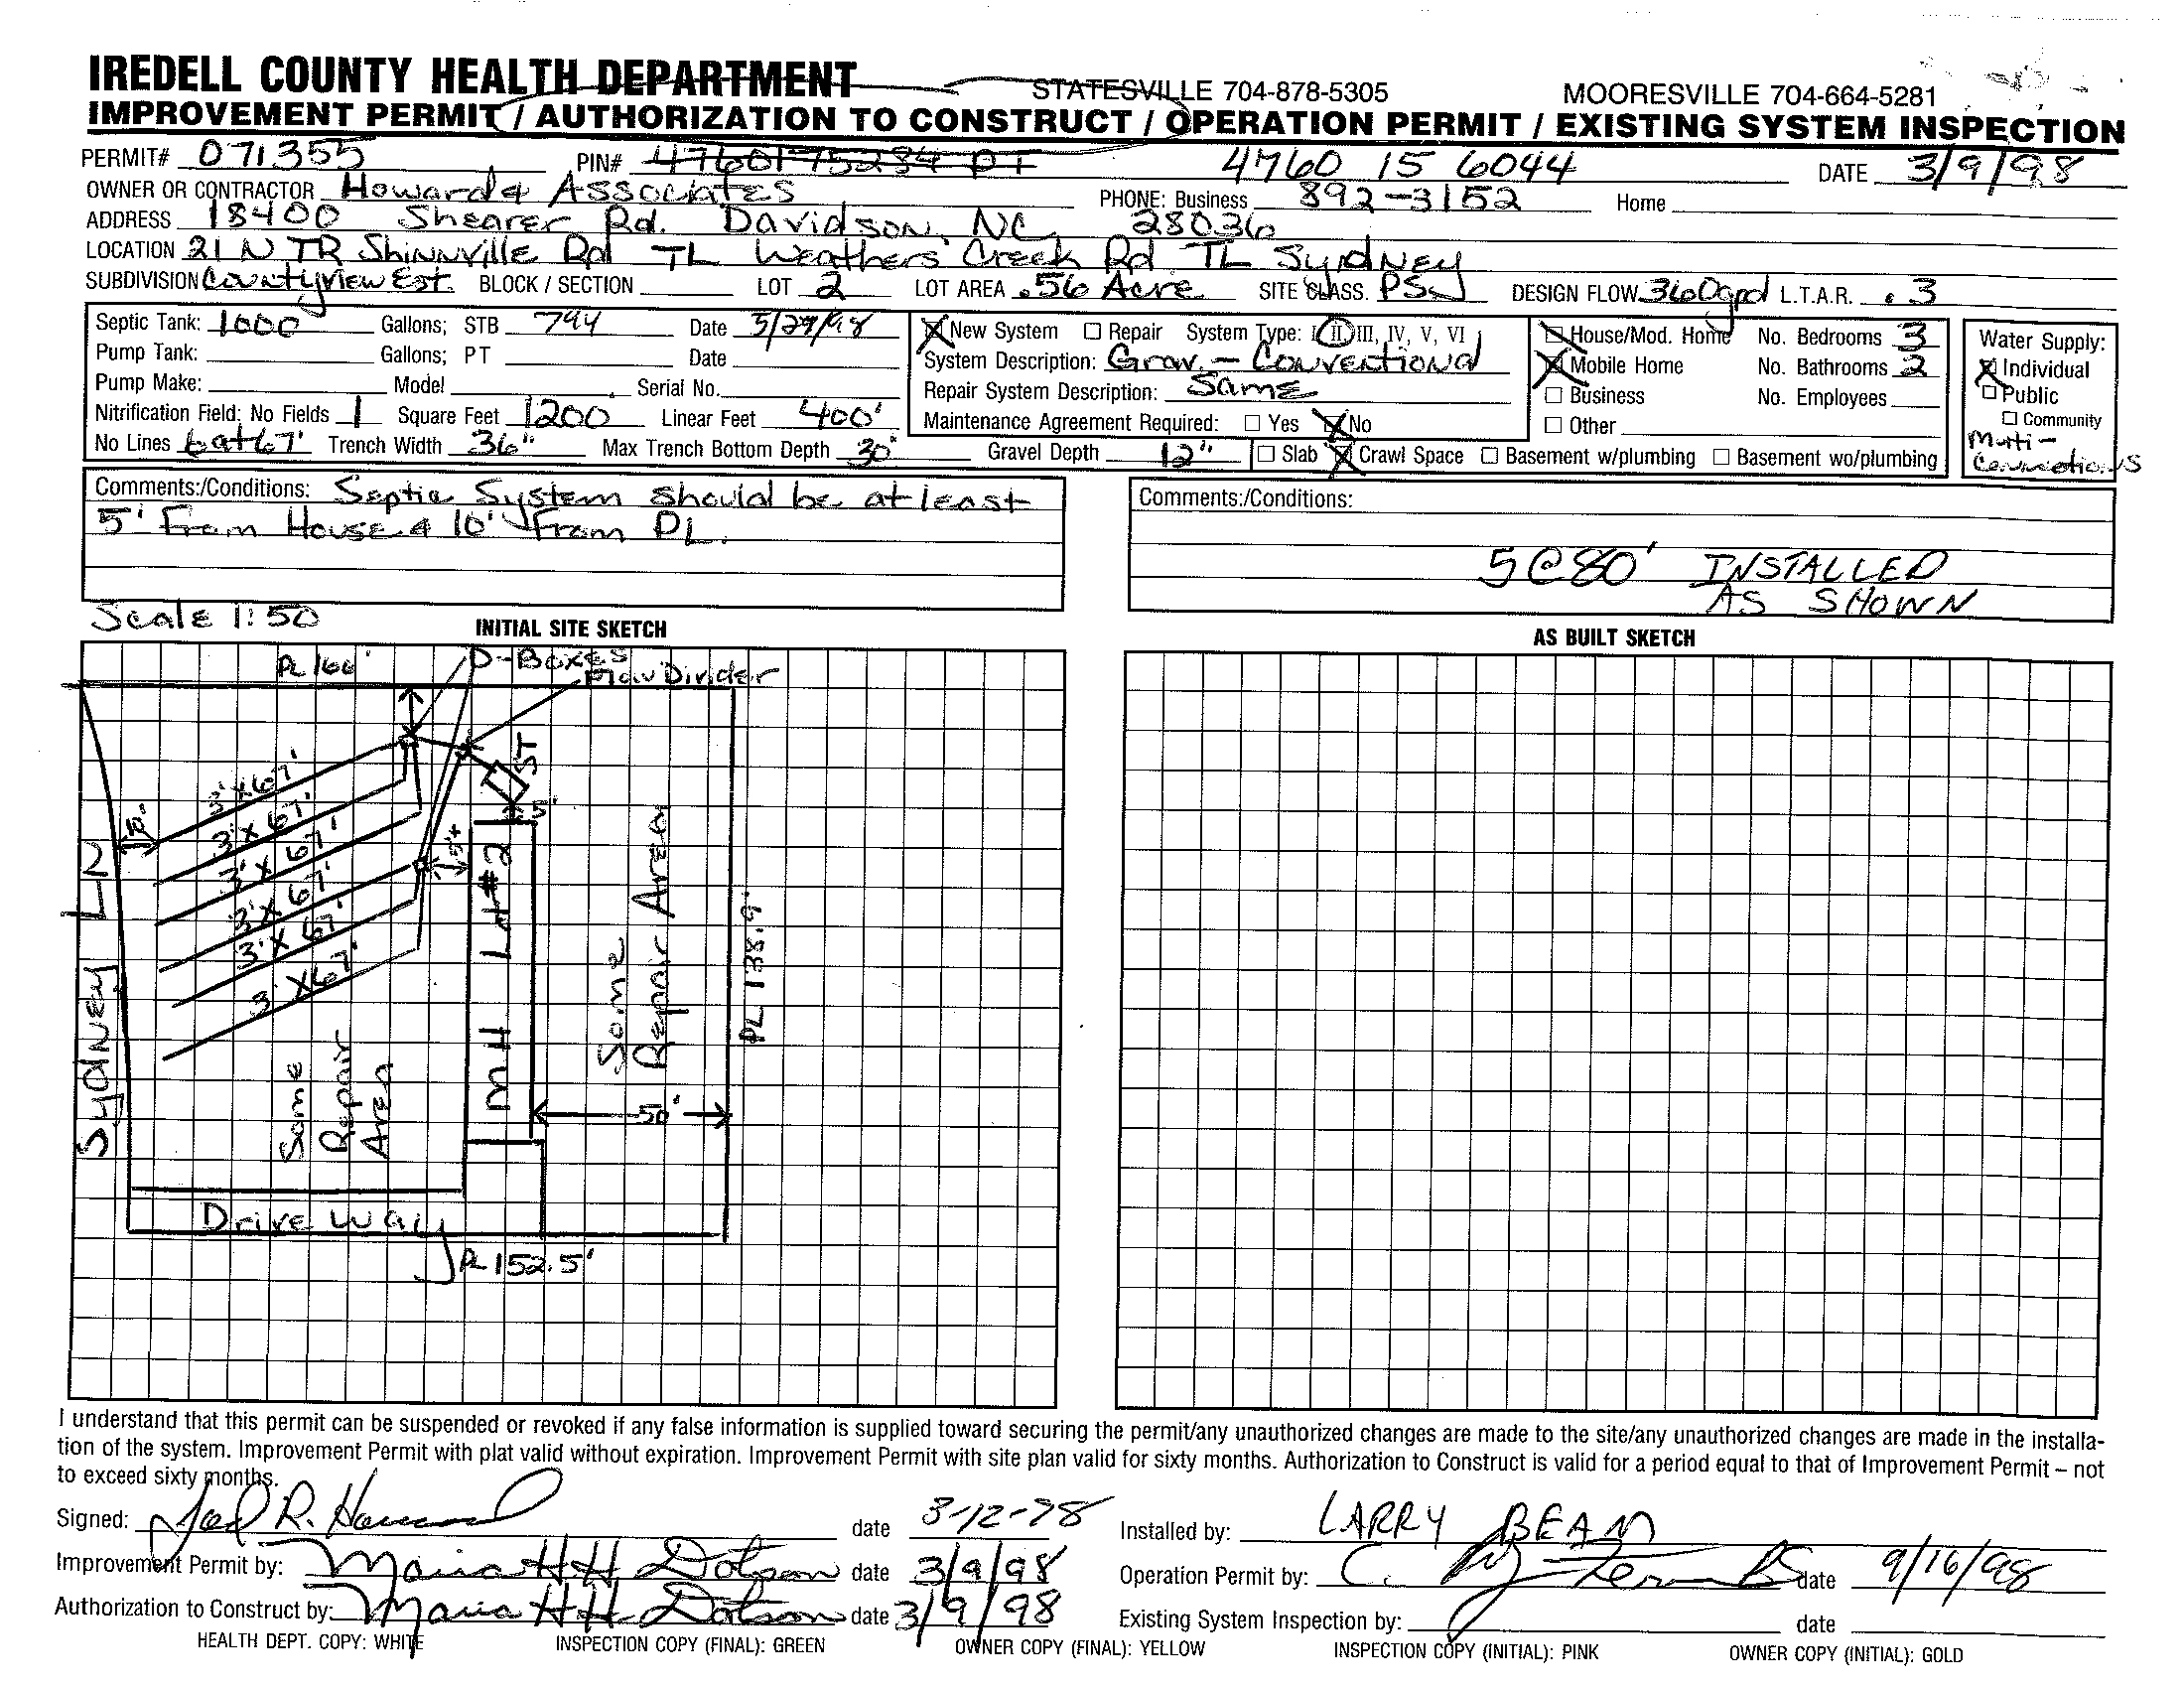 IREDELL COUNTY HEALTH DEPARTMENT STATESVILLE 704-878-5305 MOORESVILLE 704-664-5281
IMPROVEMENT PERMIT / AUTHORIZATION TO CONSTRUCT / OPERATION PERMIT / EXISTING SYSTEM INSPECTION
PERMIT# 071355 PIN# 4760175284 PT 4760 15 6044 DATE 3/9/98
OWNER OR CONTRACTOR Howard & Associates PHONE: Business 892-3152 Home
ADDRESS 18400 Shearer Rd. Davidson, NC 28036
LOCATION 21 N TR Shinnville Rd TL Weathers Creek Rd TL Sydney
SUBDIVISION Countyview Est. BLOCK / SECTION LOT 2 LOT AREA .56 Acre SITE CLASS. PS DESIGN FLOW 360gpd L.T.A.R. .3
Septic Tank: 1000 Gallons; STB 794 Date 5/29/98
Pump Tank: Gallons; PT Date
Pump Make: Model Serial No.
Nitrification Field: No Fields 1 Square Feet 1200 Linear Feet 400'
No Lines 6 at 67' Trench Width 36" Max Trench Bottom Depth 30" Gravel Depth 12"
New System Repair System Type: I II III, IV, V, VI
System Description: Grav. - Conventional
Repair System Description: Same
Maintenance Agreement Required: Yes No
Slab Crawl Space Basement w/plumbing Basement wo/plumbing
House/Mod. Home No. Bedrooms 3
Mobile Home No. Bathrooms 2
Business No. Employees
Other
Water Supply:
Individual
Public
Community
Multi-
Connections
Comments:/Conditions: Septic System should be at least
5' From House & 10' From PL.
Comments:/Conditions:
5@80' INSTALLED
AS SHOWN
Scale 1:50
INITIAL SITE SKETCH
AS BUILT SKETCH
PL 166'
D-Boxes
Flow Divider
ST
5'
10'
3'x67'
3'x67'
3'x67'
3'x67'
3'x67'
3'x67'
5'+
L2
Sydney
MH Lot#2
Some
Repair Area
PL 138.9'
50'
Some
Repair
Area
Drive way
PL 152.5'
I understand that this permit can be suspended or revoked if any false information is supplied toward securing the permit/any unauthorized changes are made to the site/any unauthorized changes are made in the installa-
tion of the system. Improvement Permit with plat valid without expiration. Improvement Permit with site plan valid for sixty months. Authorization to Construct is valid for a period equal to that of Improvement Permit – not
to exceed sixty months.
Signed: date 3-12-98
Improvement Permit by: Maria H H Dotson date 3/9/98
Authorization to Construct by: Maria H H Dotson date 3/9/98
Installed by: LARRY BEAM
Operation Permit by: date 9/16/98
Existing System Inspection by: date
HEALTH DEPT. COPY: WHITE INSPECTION COPY (FINAL): GREEN OWNER COPY (FINAL): YELLOW INSPECTION COPY (INITIAL): PINK OWNER COPY (INITIAL): GOLD